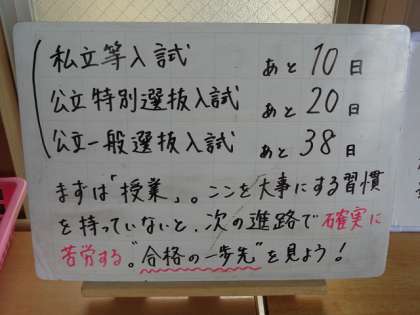 私立等入試 あと10日
公立特別選抜入試 あと20日
公立一般選抜入試 あと38日
まずは「授業」。ここを大事にする習慣
を持っていないと、次の進路で確実に
苦労する。"合格の一歩先"を見よう!